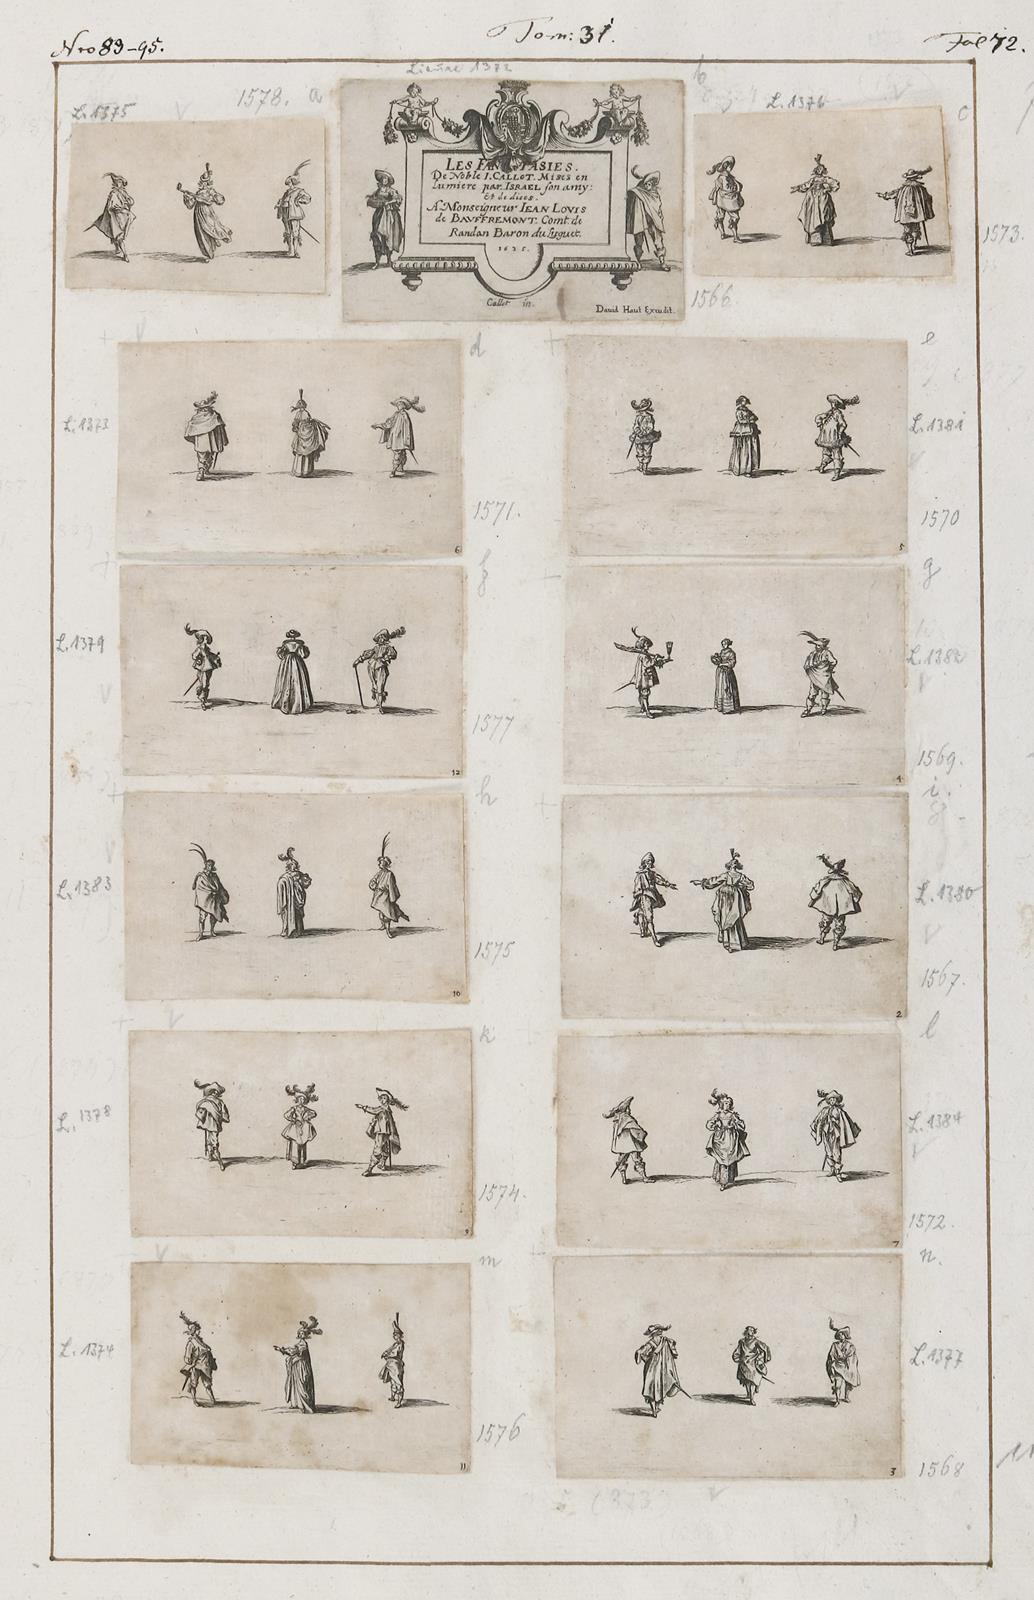 Nro 83-95.
Tom: 31.
Fol 72.
Lieure 1372
L.1375
1578. a
b
L.1376
c
LES FANTASIES.
De Noble I. CALLOT. Mises en
lumiere par ISRAEL son amy:
Et de diees.
A Monseigneur IEAN LOVIS
de BAVFFREMONT. Comt. de
Randan Baron du Luguet.
1635.
Callot in.
Dauid Haut Excudit.
1573.
1566
d
e
L.1373
L.1381
1571.
1570
6
5
f
g
L.1379
L.1382
1577
1569.
12
4
h
i.
L.1383
L.1380
1575
1567.
10
2
k
l
L.1378
L.1384
1574.
1572.
9
7
m
n.
L.1374
L.1377
1576
1568
11
3
(373)